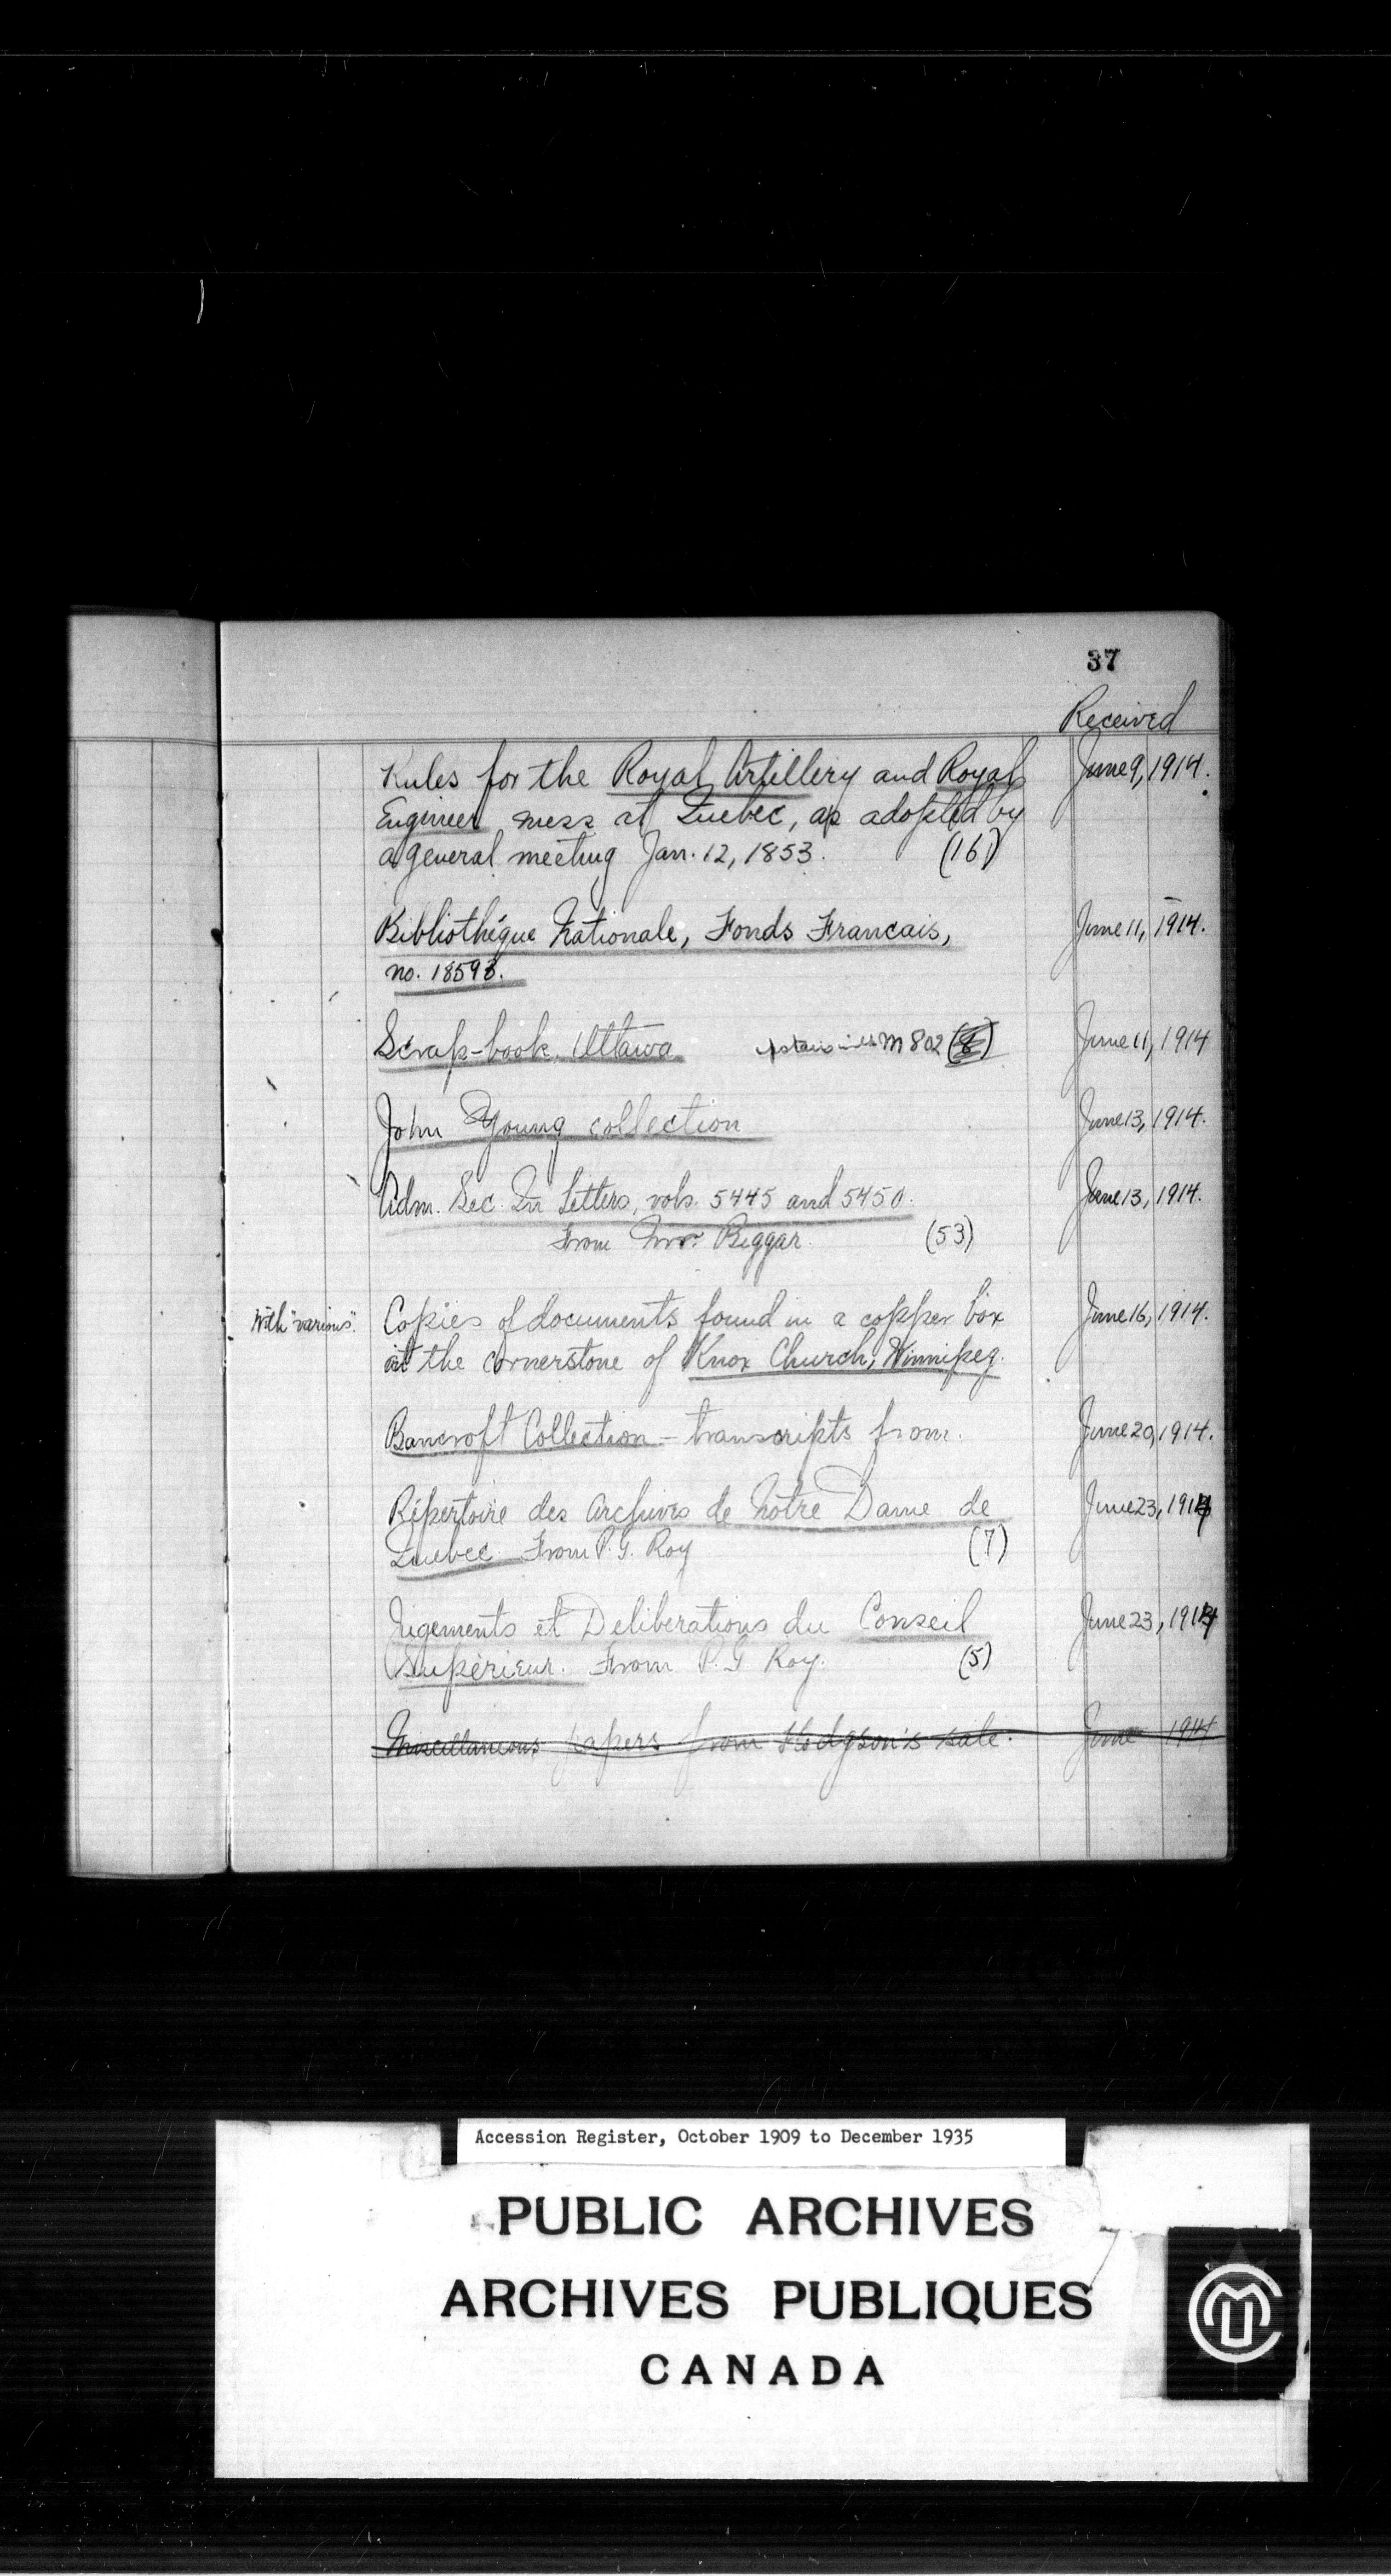 37
Received
Rules for the Royal Artillery and Royal June 9, 1914.
Engineer mess at Quebec, as adopted by
a general meeting Jan. 12, 1853. (16)
Bibliothéque Nationale, Fonds Francais, June 11, 1914.
no. 18593.
Scrap-book, Ottawa M 802 (8) June 11, 1914
John Young collection June 13, 1914.
Adm. Sec. In Letters, vols. 5445 and 5450. June 13, 1914.
From Mr. Biggar. (53)
With "various". Copies of documents found in a copper box June 16, 1914.
at the cornerstone of Knox Church, Winnipeg.
Bancroft Collection - transcripts from. June 20, 1914.
Répertoire des Archives de Notre Dame de June 23, 1914
Quebec. From P. G. Roy (7)
Jugements et Deliberations du Conseil June 23, 1914
Supérieur. From P. G. Roy. (5)
Miscellaneous papers from Hodgson's sale. June 1914
Accession Register, October 1909 to December 1935
PUBLIC ARCHIVES
ARCHIVES PUBLIQUES
CANADA